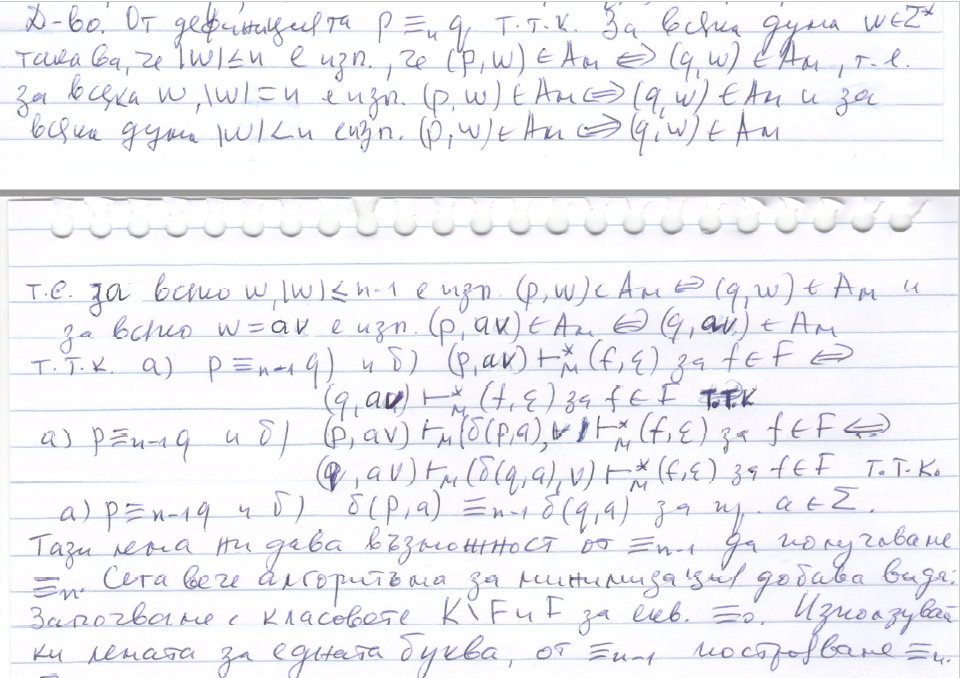 Д-во. От дефиницията p ≡ₙ q, т.т.к. За всяка дума w∈Σ*
такава, че |w|≤n е изп., че (p,w)∈Aм ⇔ (q,w)∈Aм, т.е.
за всяка w, |w|=n е изп. (p,w)∈Aм⇔(q,w)∈Aм и за
всяка дума |w|<n е изп. (p,w)∈Aм ⇔ (q,w)∈Aм
т.е. за всяко w,|w|≤n-1 е изп. (p,w)∈Aм ⇔ (q,w)∈Aм и
за всяко w=av е изп. (p,av)∈Aм ⇔ (q,av)∈Aм
т.т.к. а) p≡ₙ₋₁q) и б) (p,av)⊢*м(f,ε) за f∈F ⇔
(q,av)⊢*м(f,ε) за f∈F т.т.к
а) p≡ₙ₋₁q и б) (p,av)⊢м(δ(p,a),v)⊢*м(f,ε) за f∈F ⇔
(q,av)⊢м(δ(q,a),v)⊢*м(f,ε) за f∈F т.т.к.
а) p≡ₙ₋₁q и б) δ(p,a)≡ₙ₋₁δ(q,a) за пр. a∈Σ.
Тази лема ни дава възможност от ≡ₙ₋₁ да получаване
≡ₙ. Сега вече алгоритъма за минимизация добива вида:
Започваме с класовете K\F и F за екв. ≡₀. Използувай
ки лемата за едната буква, от ≡ₙ₋₁ построяваме ≡ₙ.